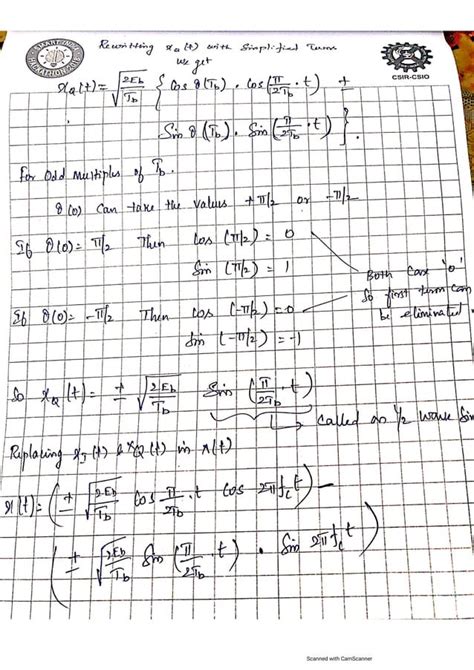 Rewritting x_Q(t) with Simplified Terms
We get
SMART INDIA HACKATHON
CSIR-CSIO
x_Q(t) = √(2E_b/T_b) { Cos θ(T_b) · Cos(π/2T_b · t) ±
Sin θ(T_b) · Sin(π/2T_b · t) }.
For Odd multiples of T_b.
θ(0) Can take the Values +π/2 or -π/2
If θ(0) = π/2 Then Cos (π/2) = 0
Sin (π/2) = 1
Both Case '0'
So first term can
be eliminated.
If θ(0) = -π/2 Then Cos (-π/2) = 0
Sin (-π/2) = -1
So x_Q(t) = ± √(2E_b/T_b) Sin (π/2T_b · t)
Called as 1/2 wave Sin
Replacing x_I(t) & x_Q(t) in x(t)
x(t) = (± √(2E_b/T_b) Cos π/2T_b · t Cos 2πf_c t) -
(± √(2E_b/T_b) Sin (π/2T_b · t) · Sin 2πf_c t)
Scanned with CamScanner